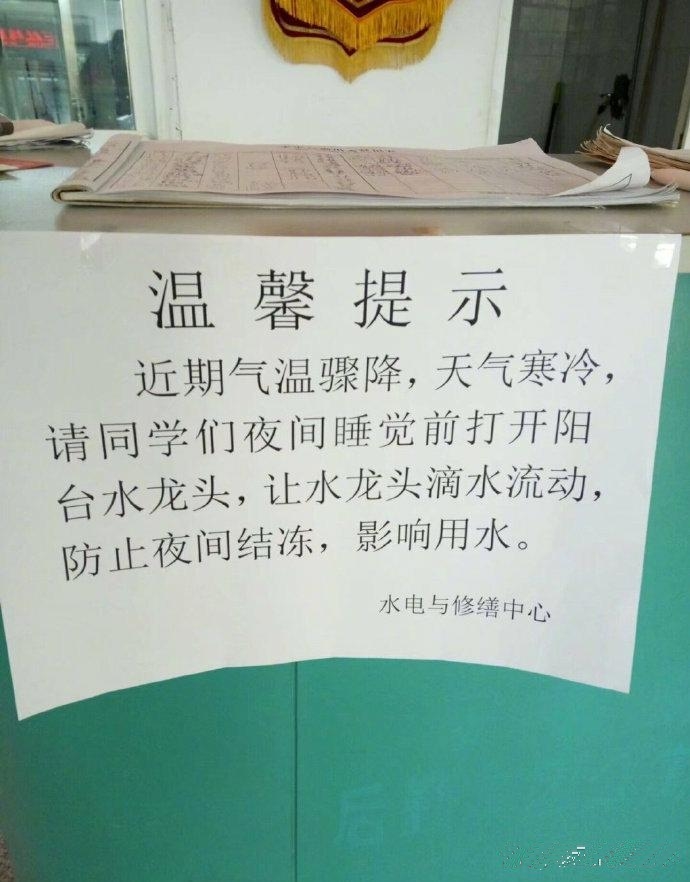 温馨提示
近期气温骤降，天气寒冷，
请同学们夜间睡觉前打开阳
台水龙头，让水龙头滴水流动，
防止夜间结冻，影响用水。
水电与修缮中心